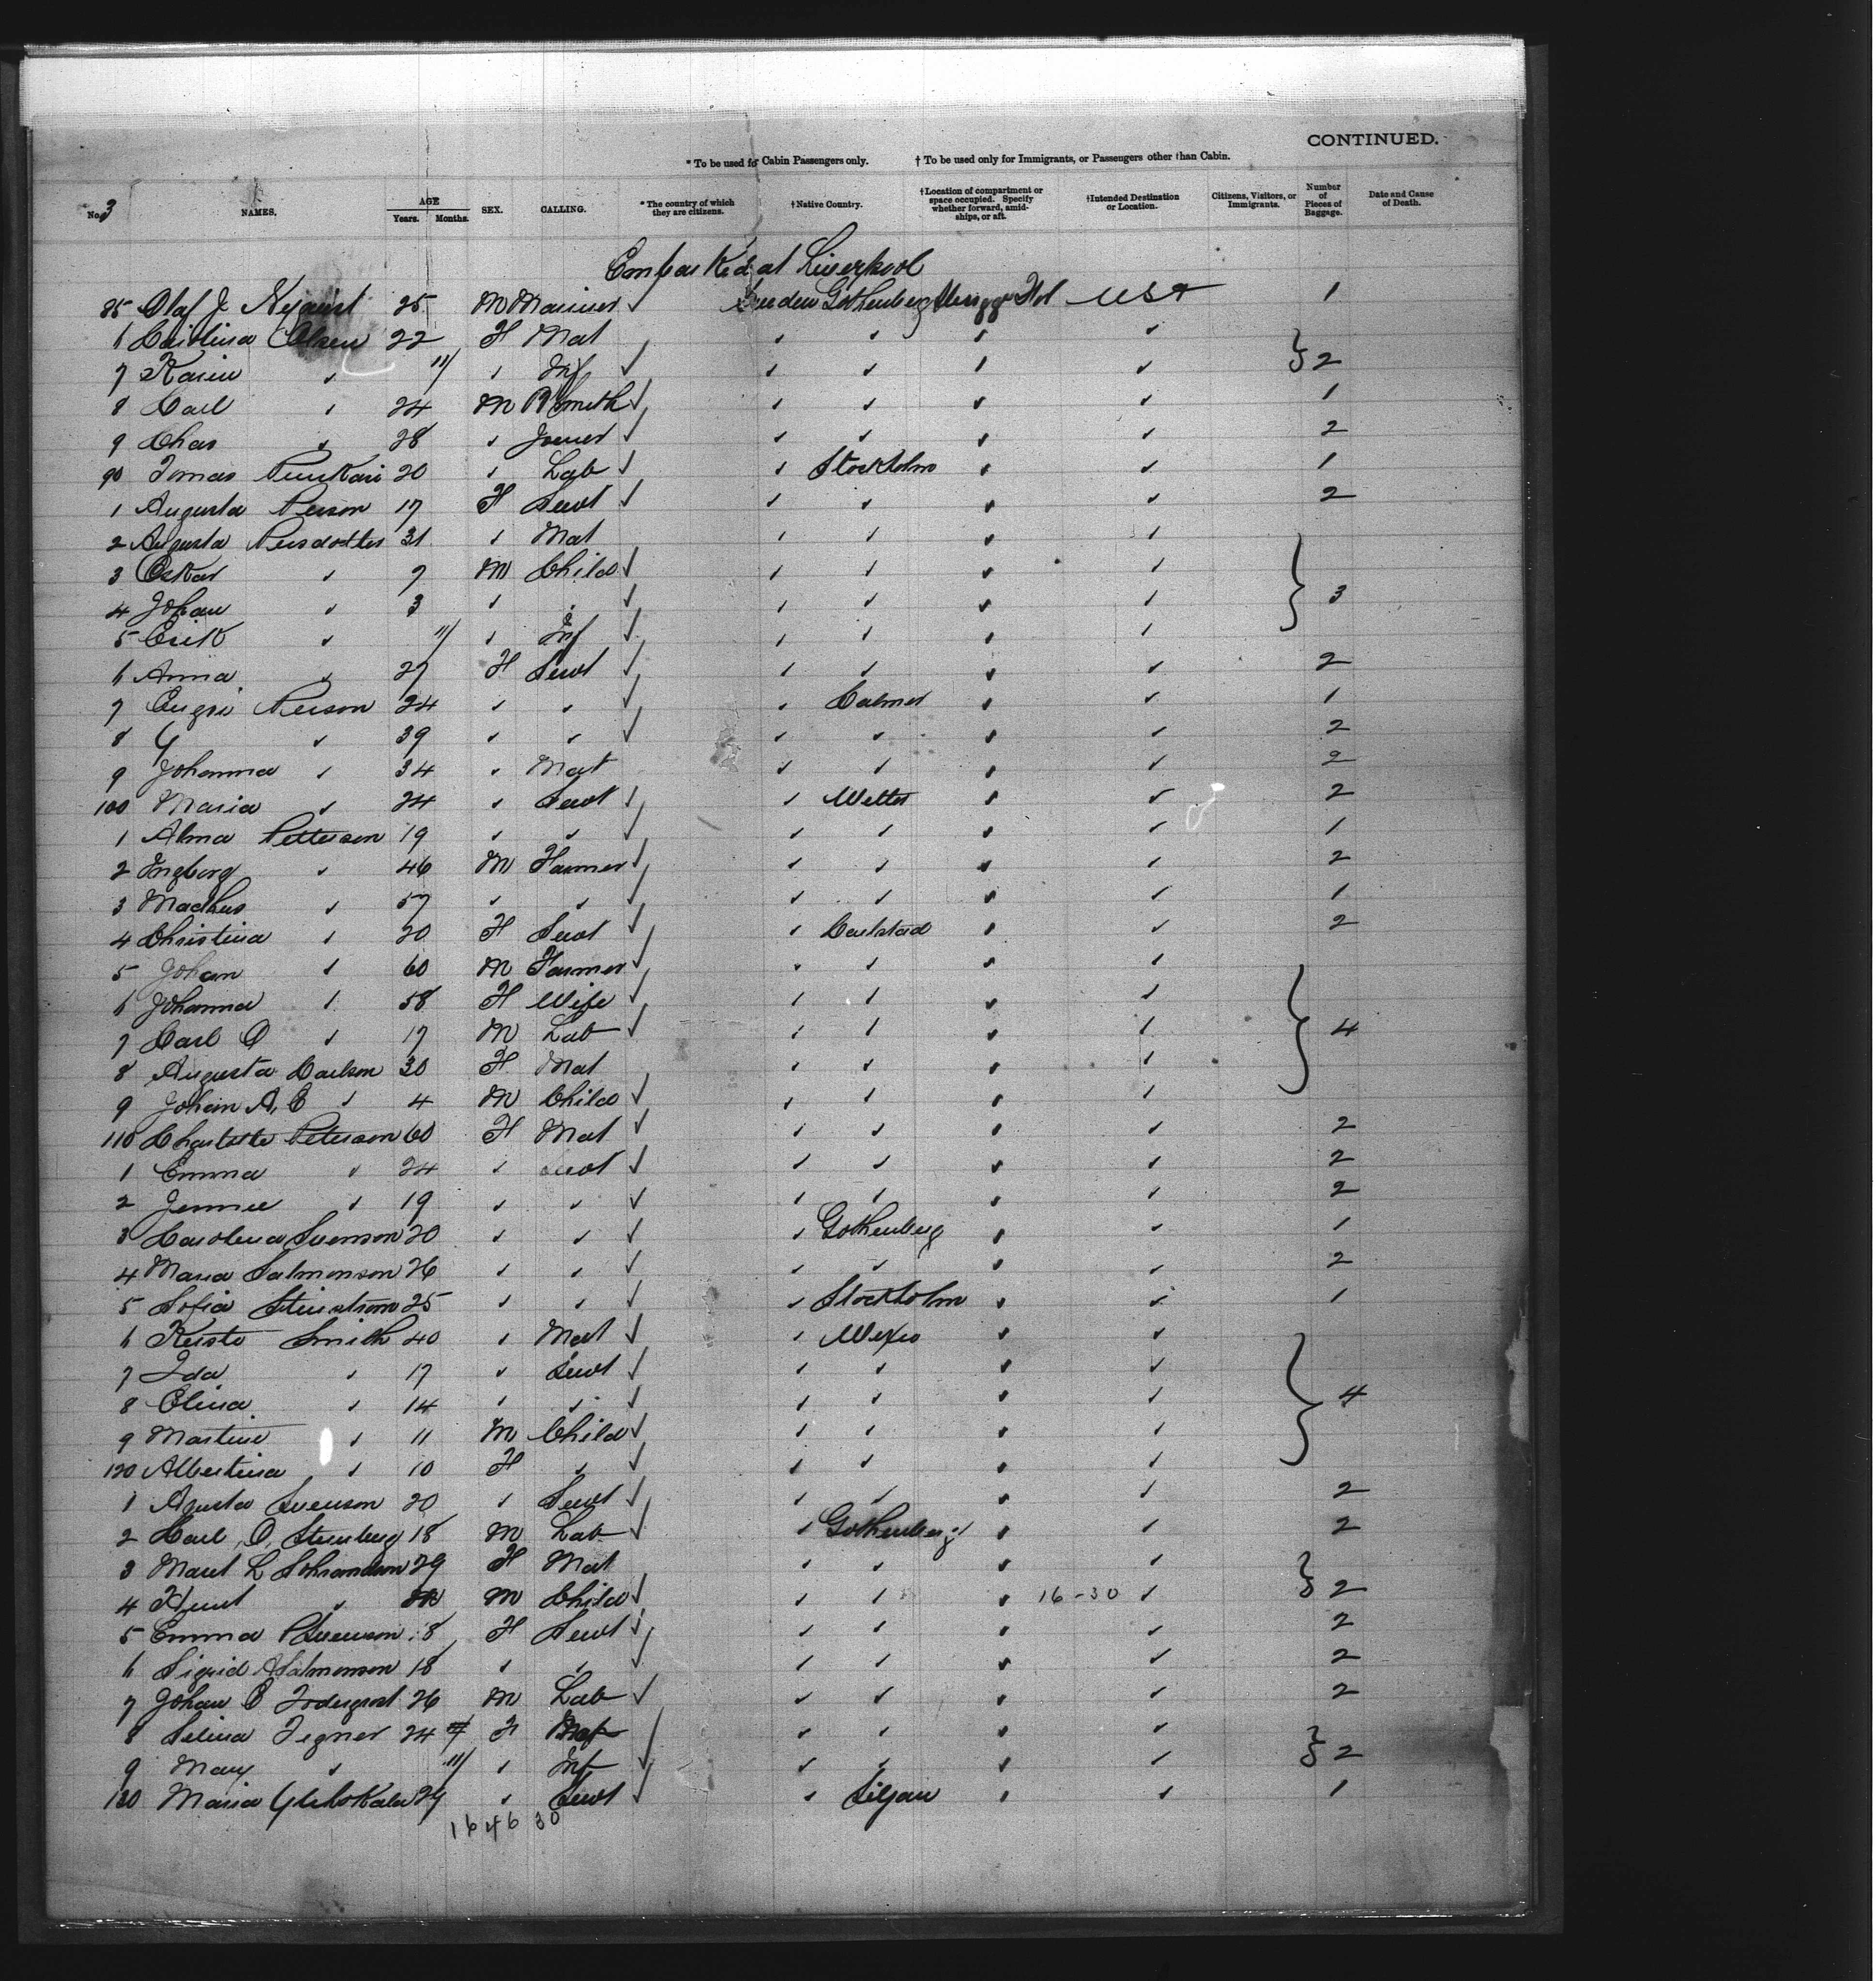 CONTINUED.
* To be used for Cabin Passengers only. † To be used only for Immigrants, or Passengers other than Cabin.
No. 3 NAMES. AGE Years. Months. SEX. CALLING. * The country of which they are citizens. † Native Country. † Location of compartment or space occupied. Specify whether forward, amidships, or aft. † Intended Destination or Location. Citizens, Visitors, or Immigrants. Number of Pieces of Baggage. Date and Cause of Death.
Embarked at Liverpool
85 Olaf J 25 M Mariner ✓ Sweden Gothenberg USA 1
6 Christina Olsen 22 F Mat ✓ ✓ ✓ ✓
7 Karin ✓ 11/ ✓ Inf ✓ ✓ ✓ ✓ ✓ } 2
8 Carl ✓ 24 M B Smith ✓ ✓ ✓ ✓ ✓ 1
9 Chas ✓ 28 ✓ Joiner ✓ ✓ ✓ ✓ ✓ 2
90 Tomas 20 ✓ Lab ✓ ✓ Stockholm ✓ ✓ 1
1 Augusta Person 17 F Servt ✓ ✓ ✓ ✓ ✓ 2
2 Augusta Persdotter 31 ✓ Mat ✓ ✓ ✓ ✓
3 Oskar ✓ 7 M Child ✓ ✓ ✓ ✓ ✓
4 Johan ✓ 3 ✓ ✓ ✓ ✓ ✓ ✓ ✓ } 3
5 Erik ✓ 11/ ✓ Inf ✓ ✓ ✓ ✓ ✓
6 Anna ✓ 27 F Servt ✓ ✓ ✓ ✓ ✓ 2
7 Person 24 ✓ ✓ ✓ ✓ Calmer ✓ ✓ 1
8 ✓ 39 ✓ ✓ ✓ ✓ ✓ ✓ ✓ 2
9 Johanna ✓ 34 ✓ Mat ✓ ✓ ✓ ✓ 2
100 Maria ✓ 24 ✓ Servt ✓ ✓ Wetter ✓ ✓ 2
1 Alma Petterson 19 ✓ ✓ ✓ ✓ ✓ ✓ ✓ 1
2 Ingborg ✓ 46 M Farmer ✓ ✓ ✓ ✓ ✓ 2
3 ✓ 57 ✓ ✓ ✓ ✓ ✓ ✓ ✓ 1
4 Christina ✓ 20 F Servt ✓ ✓ Carlstad ✓ ✓ 2
5 Johan ✓ 60 M Farmer ✓ ✓ ✓ ✓ ✓
6 Johanna ✓ 58 F Wife ✓ ✓ ✓ ✓ ✓
7 Carl O ✓ 17 M Lab ✓ ✓ ✓ ✓ ✓ } 4
8 Augusta Carlson 30 F Mat ✓ ✓ ✓ ✓
9 Johan A, E ✓ 4 M Child ✓ ✓ ✓ ✓ ✓
110 Charlotte Peterson 60 F Mat ✓ ✓ ✓ ✓ ✓ 2
1 Emma ✓ 24 ✓ Servt ✓ ✓ ✓ ✓ ✓ 2
2 Jennie ✓ 19 ✓ ✓ ✓ ✓ ✓ ✓ ✓ 2
3 Carolina Svenson 20 ✓ ✓ ✓ ✓ Gothenberg ✓ ✓ 1
4 Maria Salmonson 26 ✓ ✓ ✓ ✓ ✓ ✓ 2
5 Sofia 25 ✓ ✓ ✓ ✓ Stockholm ✓ ✓ 1
6 Smith 40 ✓ Mat ✓ ✓ Wexio ✓ ✓
7 Ida ✓ 17 ✓ Servt ✓ ✓ ✓ ✓ ✓
8 Elina ✓ 14 ✓ ✓ ✓ ✓ ✓ ✓ ✓ } 4
9 Martin ✓ 11 M Child ✓ ✓ ✓ ✓ ✓
120 Albertina ✓ 10 F ✓ ✓ ✓ ✓ ✓ ✓
1 Agusta Svenson 20 ✓ Servt ✓ ✓ ✓ ✓ ✓ 2
2 Carl O, Stenberg 18 M Lab ✓ ✓ Gothenberg ✓ ✓ 2
3 L 29 F Mat ✓ ✓ ✓ ✓
4 Knut ✓ M Child ✓ ✓ ✓ ✓ 16-30 ✓ } 2
5 Emma 18 F Servt ✓ ✓ ✓ ✓ ✓ 2
6 Sigrid A Salmonson 18 ✓ ✓ ✓ ✓ ✓ ✓ ✓ 2
7 Johan 26 M Lab ✓ ✓ ✓ ✓ ✓ 2
8 Selina Tegner 24 F Mat ✓ ✓ ✓ ✓ ✓
9 Mary ✓ 11/ ✓ Inf ✓ ✓ ✓ ✓ } 2
130 Maria 29 ✓ Servt ✓ ✓ Siljan ✓ ✓ 1
16 46 30